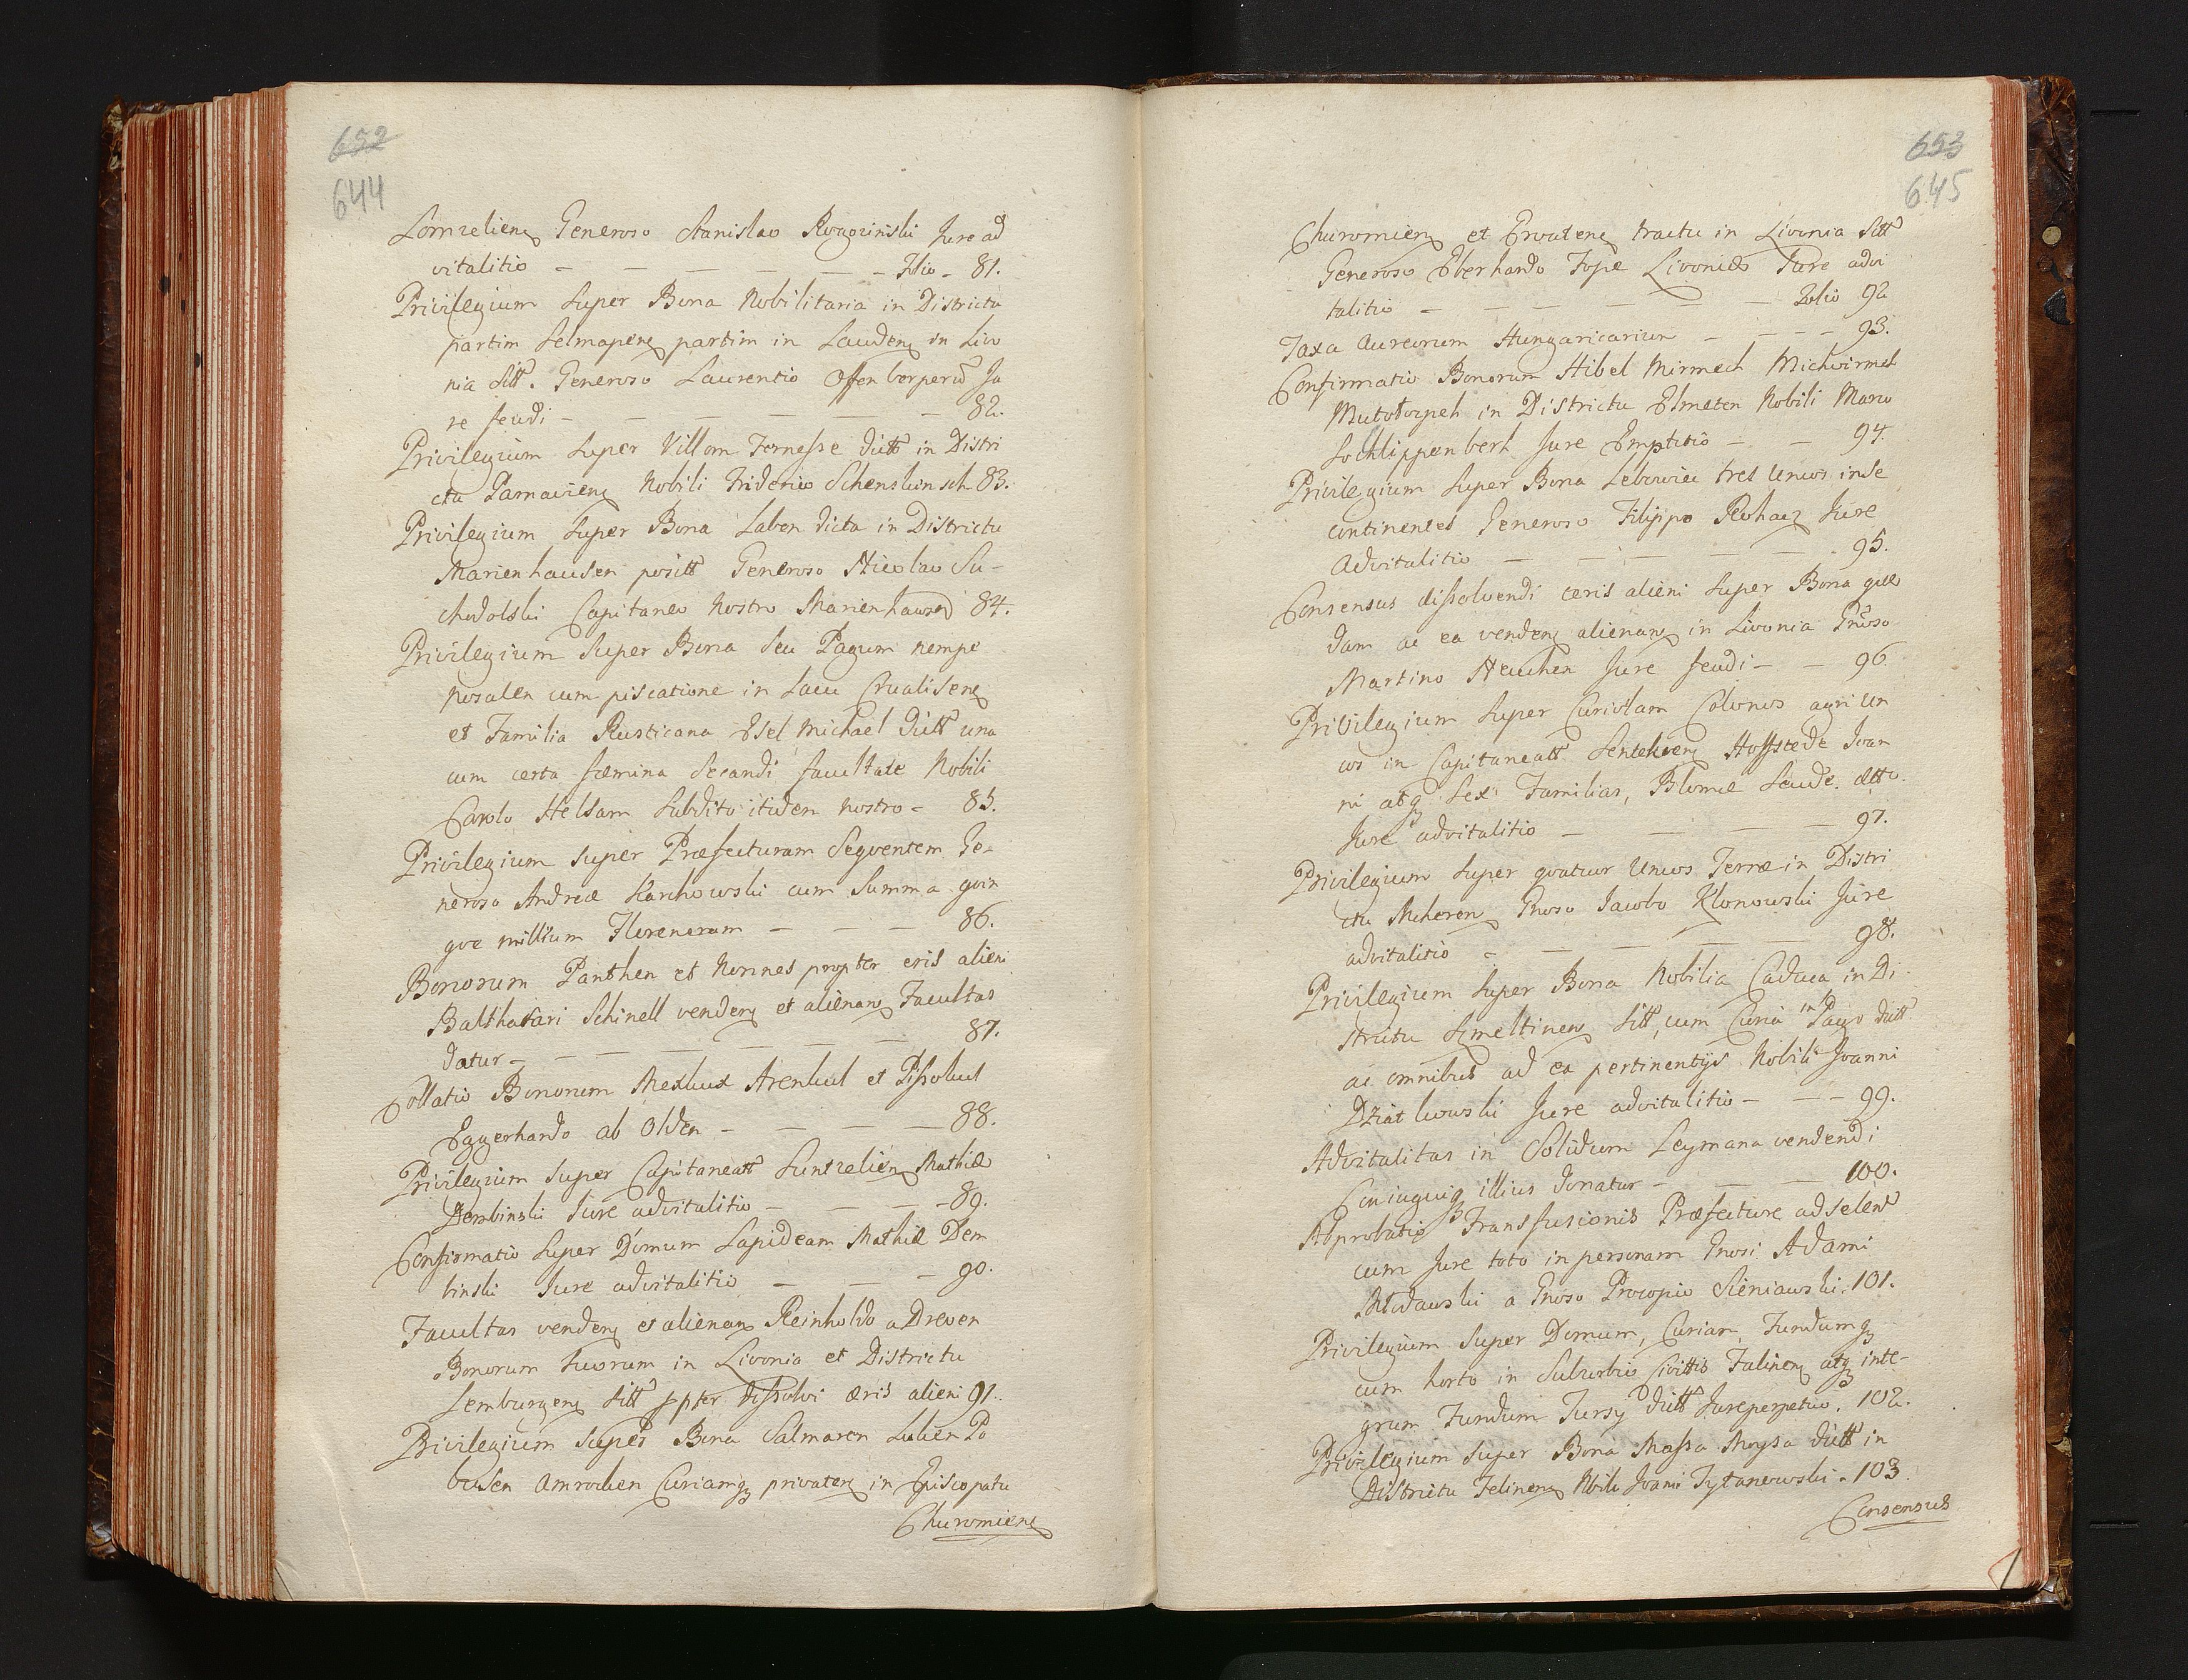 652
644
Lomzelien Generoso Stanislao Rogozinski Jure ad
vitalitio - - - - - - Folio - 81.
Privilegium super Bona Nobilitaria in Districtu
partim Selmapen partim in Lauden in Livo
nia sitt. Generoso Laurentio Offenberperd Ju
re feudi - - - - - - 82.
Privilegium super Villam Fernesse ditt in Distri
ctu Parnavien Nobili Friderico Schenskinsch 83.
Privilegium super Bona Laben dicta in Districtu
Marienhausen positt Generoso Nicolao Su-
chodolski Capitaneo Nostro Marienhausen 84.
Privilegium super Bona seu Pagum nempe
posalen cum piscatione in Lacu Crualisen
et Familia Rusticana Esel Michael ditt una
cum certa fœmina secandi facultate Nobili
Carolo Helsam subdito itidem nostro - 85.
Privilegium super Præfecturam Seqventem Ge-
neroso Andreæ Karchowski cum Summa qvin
qve millium Florenorum - - - 86.
Bonorum Panthen et Nonnes propter eris alieni
Balthasari Schinell venden et alienan Facultas
datur - - - - - - - 87.
Collatio Bonorum Mexkux Arenkul et Pissokul
Eggerhardo ab Olden - - - - 88.
Privilegium super Capitaneatt Luntzelien Mathiæ
Dembinski Jure advitalitio - - - - 89.
Confirmatio super Domum Lapideam Mathiæ Dem
binski Jure advitalitio - - - 90.
Facultas venden et alienan Reinholdo a Dreven
Bonorum suorum in Livonia et Districtu
Lemburgen sitt ppter dissolvi æris alieni 91.
Privilegium super Bona Salmaren Lulien Po
busen Amrochen Curiamq privaten in Episcopatu
Churomien
653
645
Churomien et Crouten tractu in Livonia sitt
Generoso Eberhardo Tope Livonico Jure advi
talitio - - - - - - Folio 92
Taxa Aureorum Hungaricarium - - - - 93.
Confirmatio Bonorum Hibel Mirmech Michvirmel
Mutotorpeh in Districtu Elmeten Nobili Marco
Sochlippenberh Jure Emptitio - - 94.
Privilegium super Bona Lebowiec tres Uncos in se
continentes Generoso Filippo Rohacz Jure
Advitalitio - - - - - - 95.
Consensus dissolvendi æris alieni super Bona quæ
dam ac ea venden alienan in Livonia Gnoso
Martino Neuchen Jure feudi - - 96.
Privilegium super Curiolam Colonos agri Un
cos in Capitaneatt Lentelwen Hoffstede Joan
ni atq sex Familias, Blomæ Leude. ætto.
Jure advitalitio - - - - 97.
Privilegium super qvatuor Uncos Terræ in Distri
ctu Acheren Gnoso Jacobo Klonowski Jure
advitalitio - - - - - 98.
Privilegium super Bona Nobilia Caduca in Di
strictu Smeltinen sitt, cum Curia in Pago ditt
ac omnibus ad ea pertinentijs Nobili Joanni
Dziatkowski Jure advitalitio - - - 99.
Advitalitas in Solidum Leymana vendendi
Coniugiq illius donatur - - - 100.
Approbatio Transfusionis Præfecturæ adselen
cum Jure toto in personam Gnosi Adami
Mldawski a Gnoso Procopio Sieniawski. 101.
Privilegium super Domum, Curiam, Fundumq
cum horto in Suburbio Civittis Falinen atq inte-
grum Fundum Tursy ditt Jure perpetuo. 102.
Privilegium super Bona Massa Moysa ditt in
Districtu Felinen Nbili Joani Tytanowski - 103.
Consensus